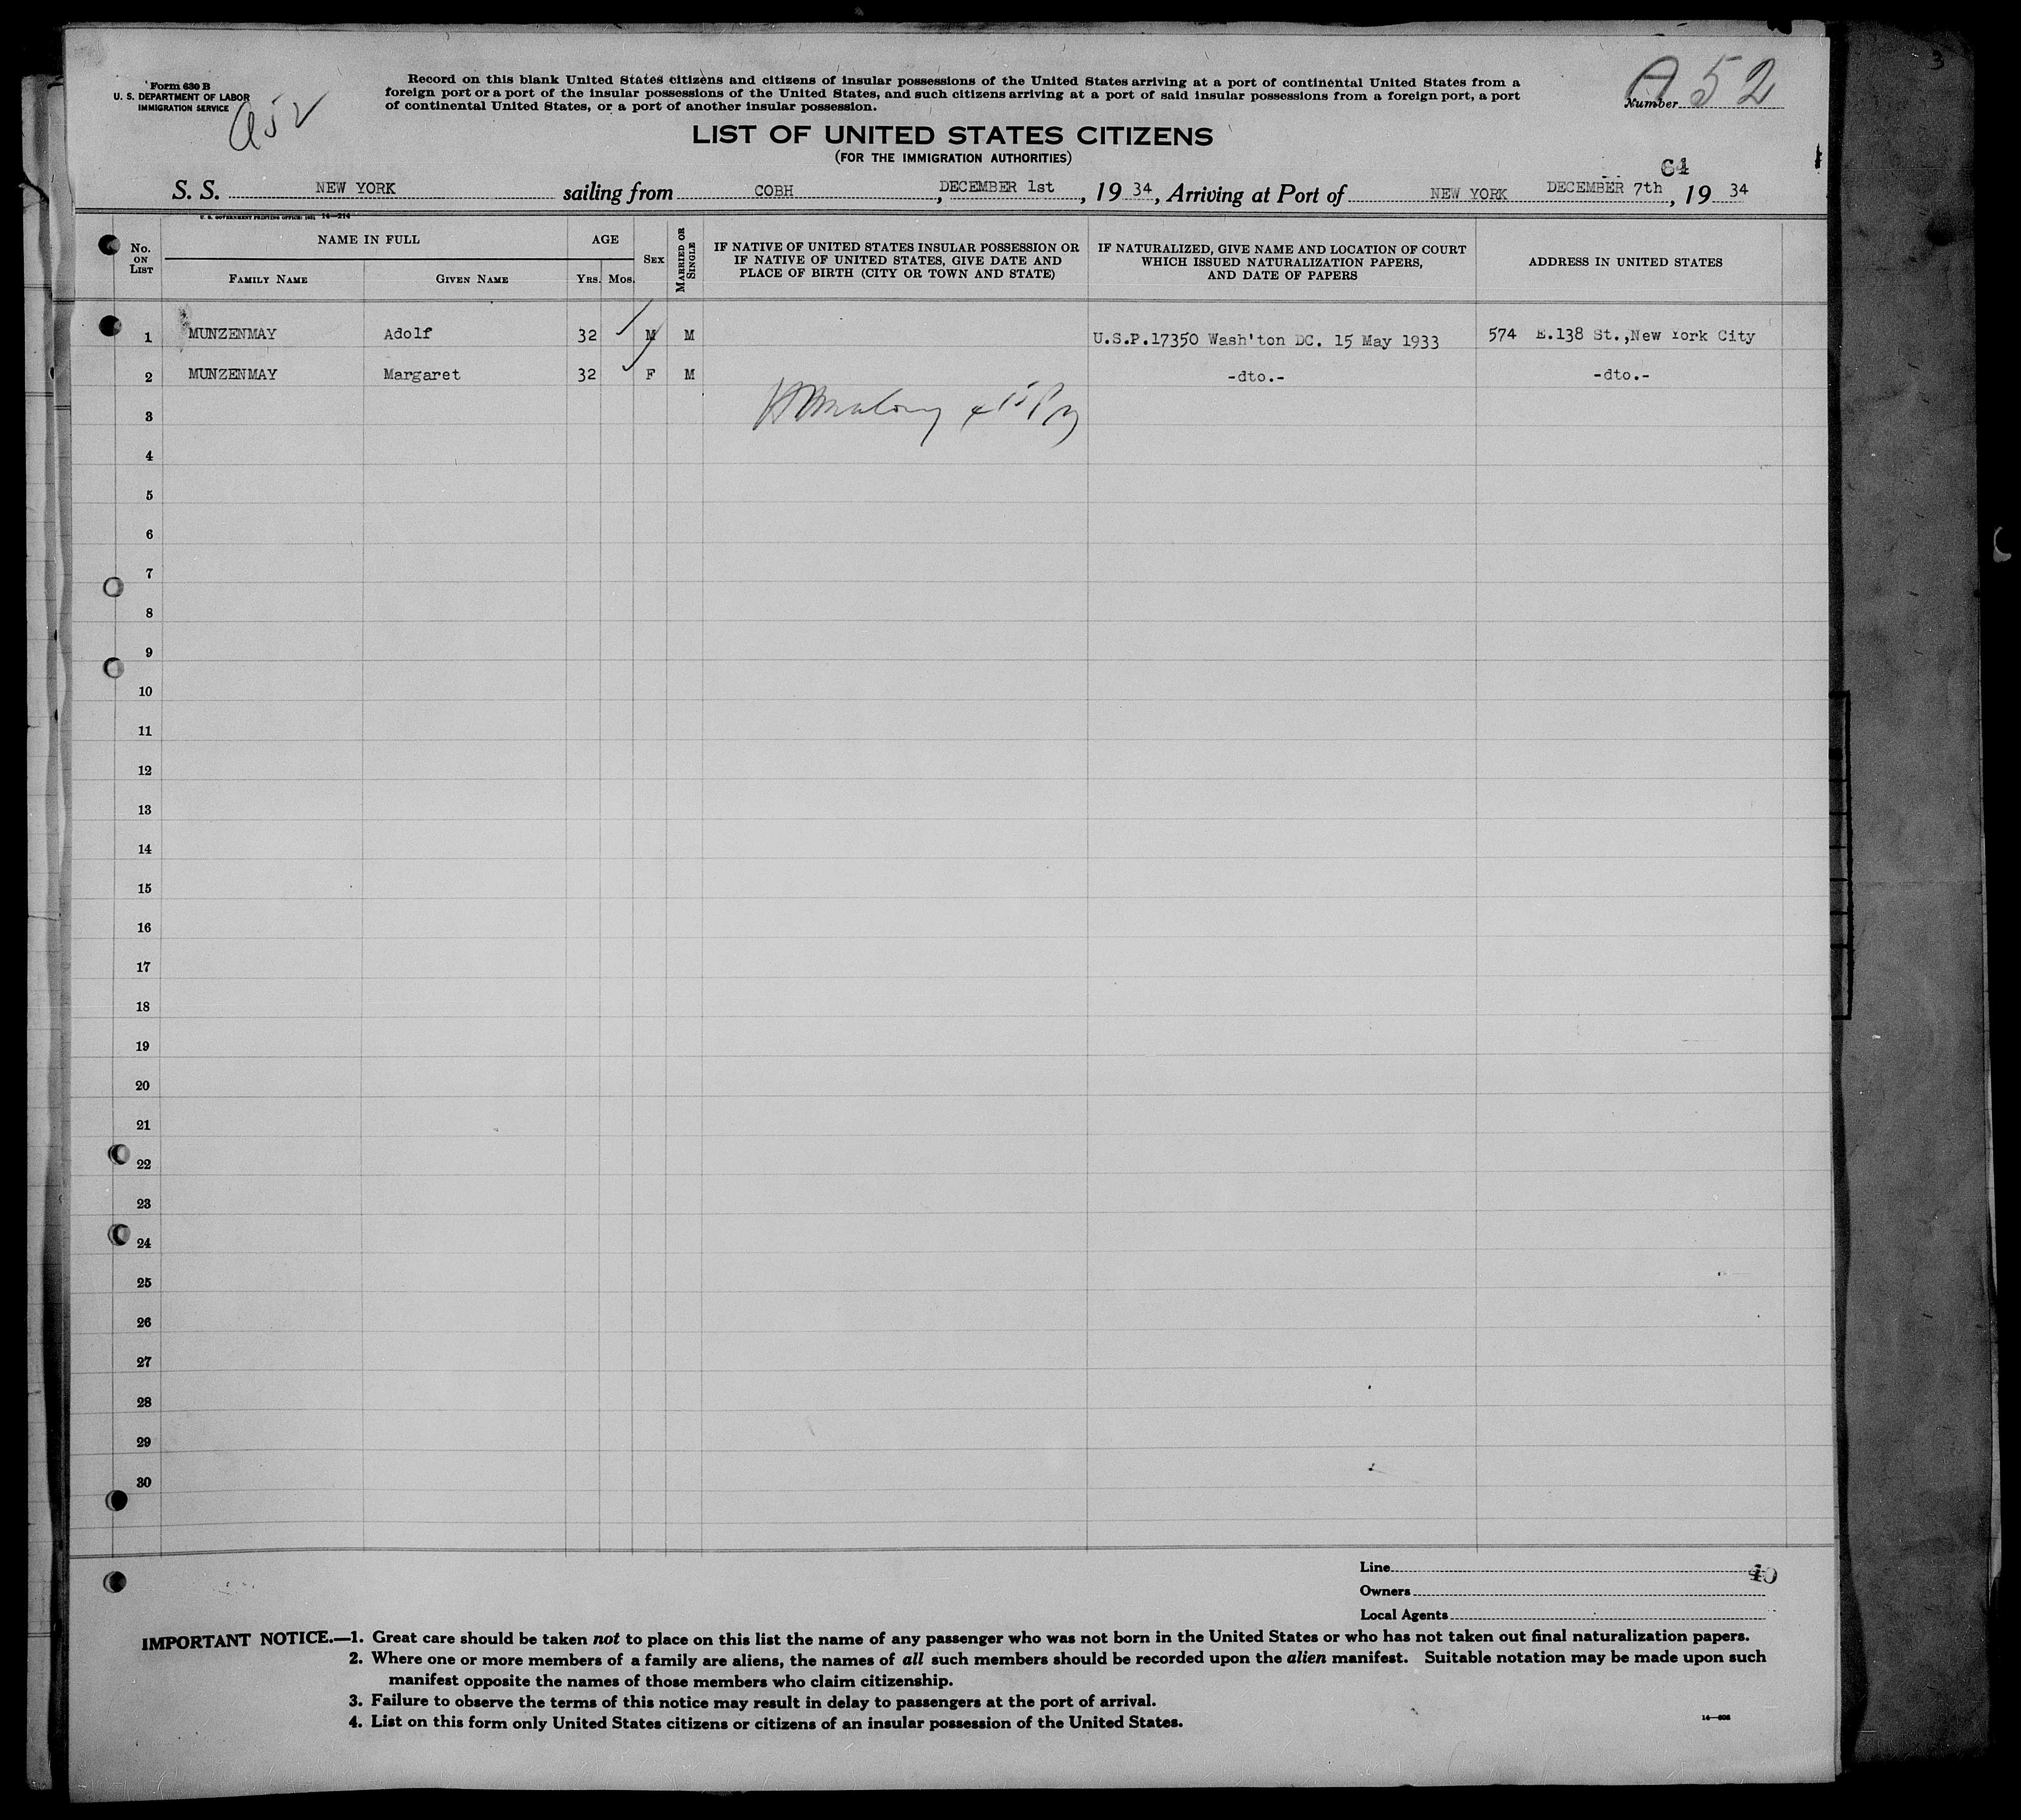 3
Form 630 B
U. S. DEPARTMENT OF LABOR
IMMIGRATION SERVICE
a52
Record on this blank United States citizens and citizens of insular possessions of the United States arriving at a port of continental United States from a
foreign port or a port of the insular possessions of the United States, and such citizens arriving at a port of said insular possessions from a foreign port, a port
of continental United States, or a port of another insular possession.
Number A 52
LIST OF UNITED STATES CITIZENS
(FOR THE IMMIGRATION AUTHORITIES)
S. S. NEW YORK sailing from COBH, DECEMBER 1st, 19 34, Arriving at Port of NEW YORK DECEMBER 7th, 19 34
U. S. GOVERNMENT PRINTING OFFICE: 1931 14—214
No. ON LIST
NAME IN FULL
FAMILY NAME
GIVEN NAME
AGE
YRS. MOS.
SEX
MARRIED OR SINGLE
IF NATIVE OF UNITED STATES INSULAR POSSESSION OR
IF NATIVE OF UNITED STATES, GIVE DATE AND
PLACE OF BIRTH (CITY OR TOWN AND STATE)
IF NATURALIZED, GIVE NAME AND LOCATION OF COURT
WHICH ISSUED NATURALIZATION PAPERS,
AND DATE OF PAPERS
ADDRESS IN UNITED STATES
1 MUNZENMAY Adolf 32 M M U.S.P.17350 Wash'ton DC. 15 May 1933 574 E.138 St.,New York City
2 MUNZENMAY Margaret 32 F M -dto.- -dto.-
3
4
5
6
7
8
9
10
11
12
13
14
15
16
17
18
19
20
21
22
23
24
25
26
27
28
29
30
Line
Owners
Local Agents
IMPORTANT NOTICE.—1. Great care should be taken not to place on this list the name of any passenger who was not born in the United States or who has not taken out final naturalization papers.
2. Where one or more members of a family are aliens, the names of all such members should be recorded upon the alien manifest. Suitable notation may be made upon such
manifest opposite the names of those members who claim citizenship.
3. Failure to observe the terms of this notice may result in delay to passengers at the port of arrival.
4. List on this form only United States citizens or citizens of an insular possession of the United States.